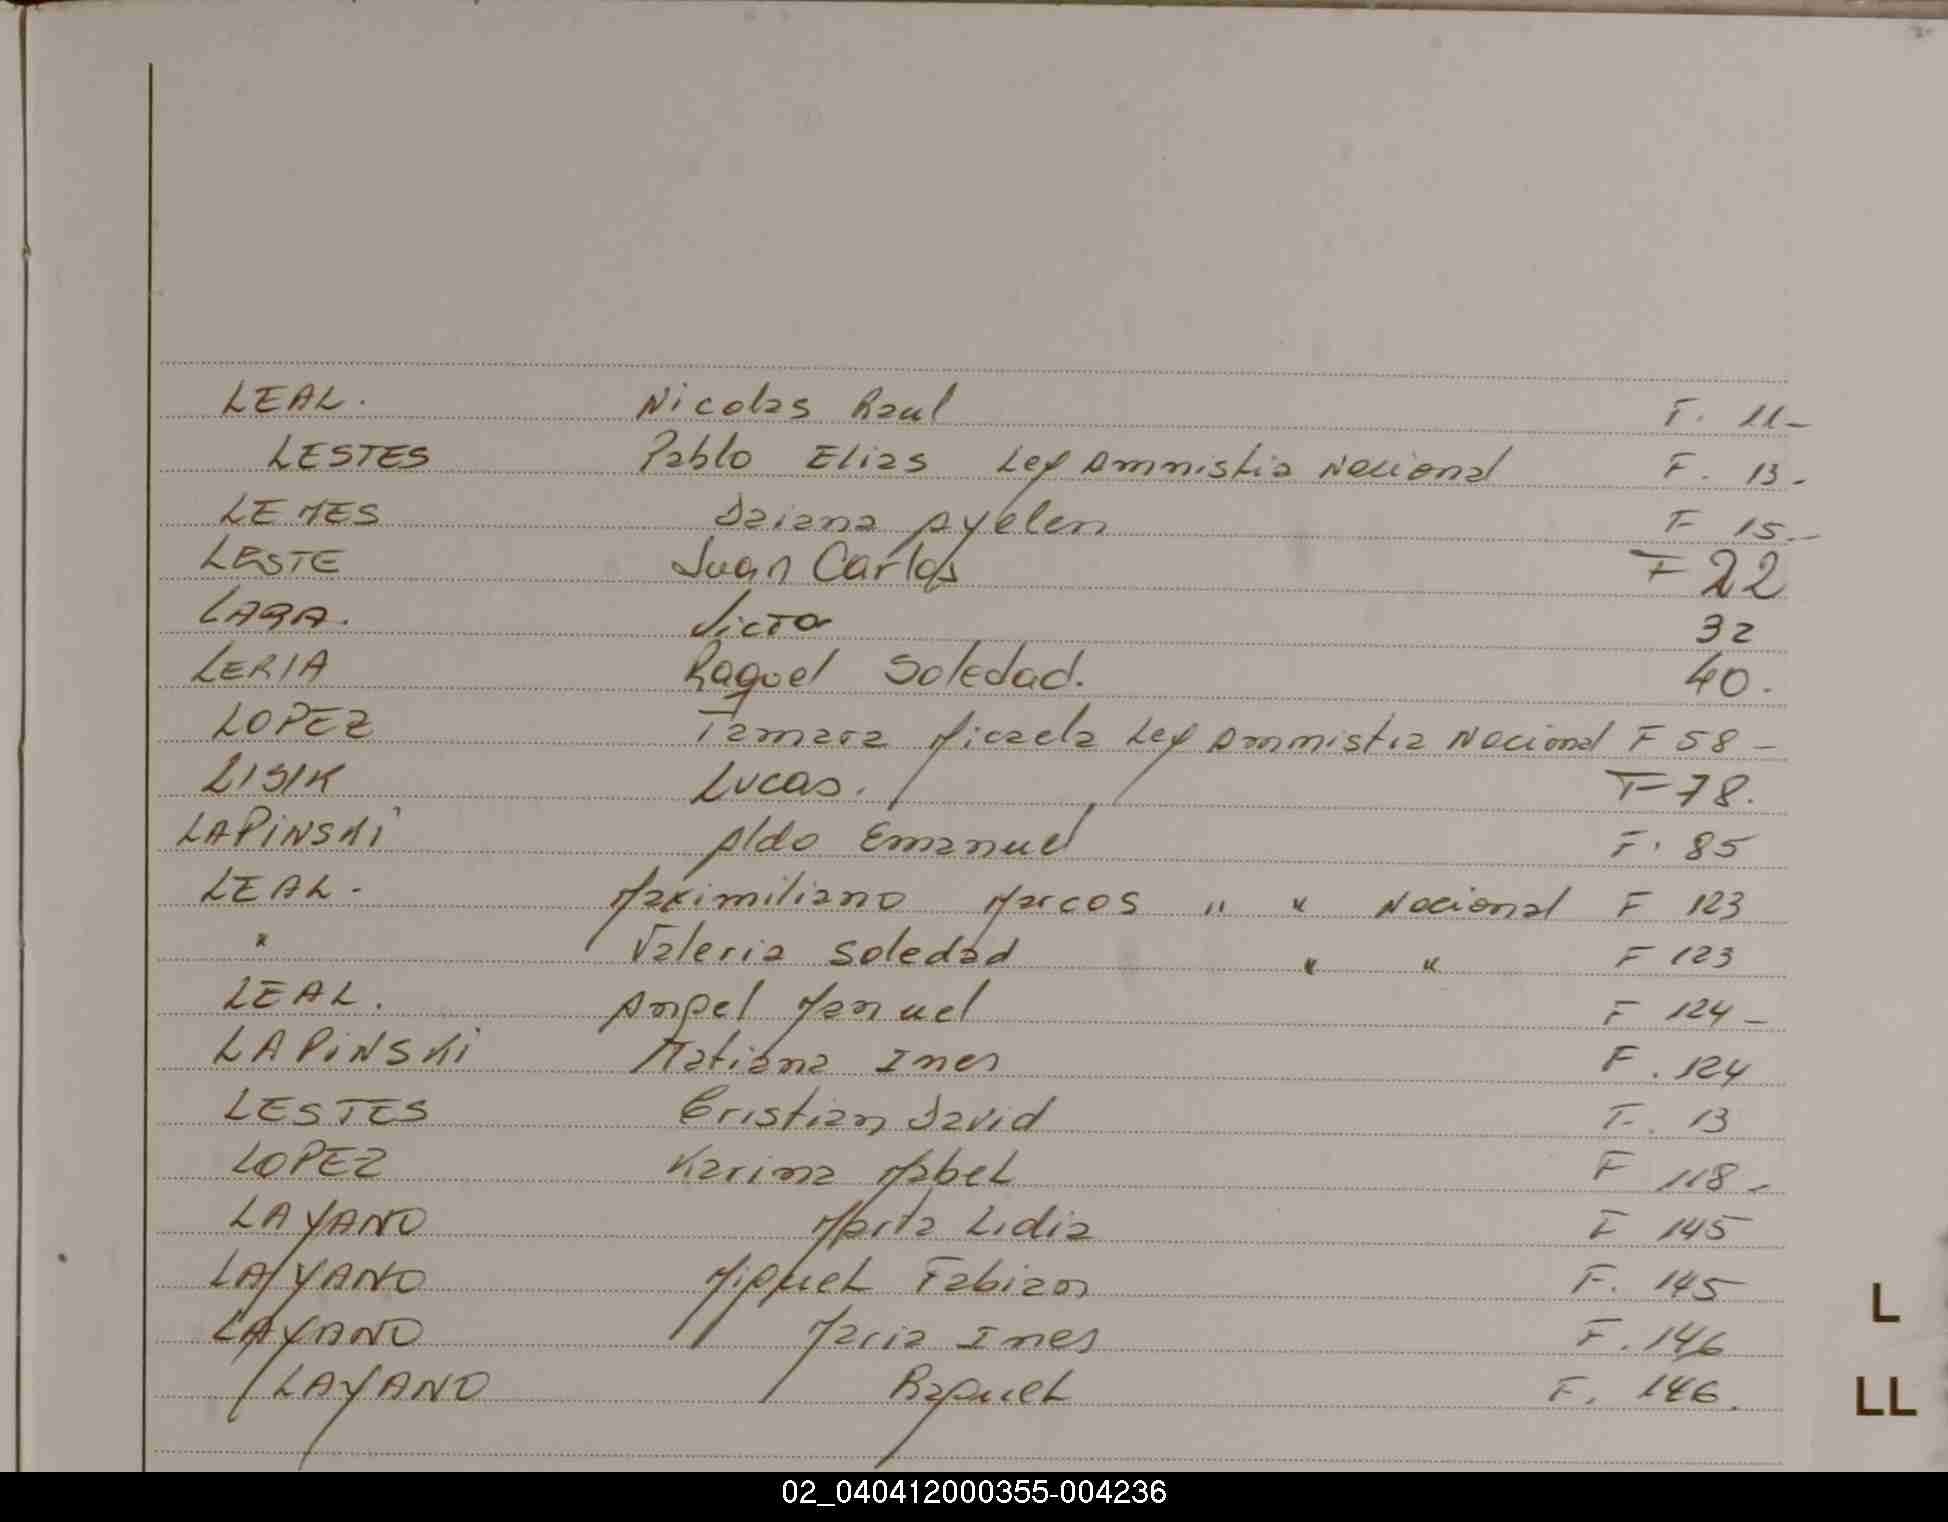 LEAL. Nicolas Raul F. 11-
LESTES Pablo Elias Ley Amnistia Nacional F. 13-
LEMES Daiana Ayelen F 15-
LESTE Juan Carlos F 22
LARA. Victor 32
LERIA Raquel Soledad. 40.
LOPEZ Tamara Micaela Ley Ammistia Nacional F 58-
LISIK Lucas. F 78.
LAPiNSKi Aldo Emanuel F. 85
LEAL. Maximiliano Marcos " " Nacional F 123
" Valeria Soledad " " F 123
LEAL. Angel Manuel F 124-
LAPiNSKi Tatiana Ines F. 124
LESTES Cristian David F. 13
LOPEZ Karina Mabel F 118-
LAYANO Marta Lidia F 145
LAYANO Miguel Fabian F. 145
LAYANO Maria Ines F. 146
LAYANO Raquel F. 146.
L
LL
02_040412000355-004236